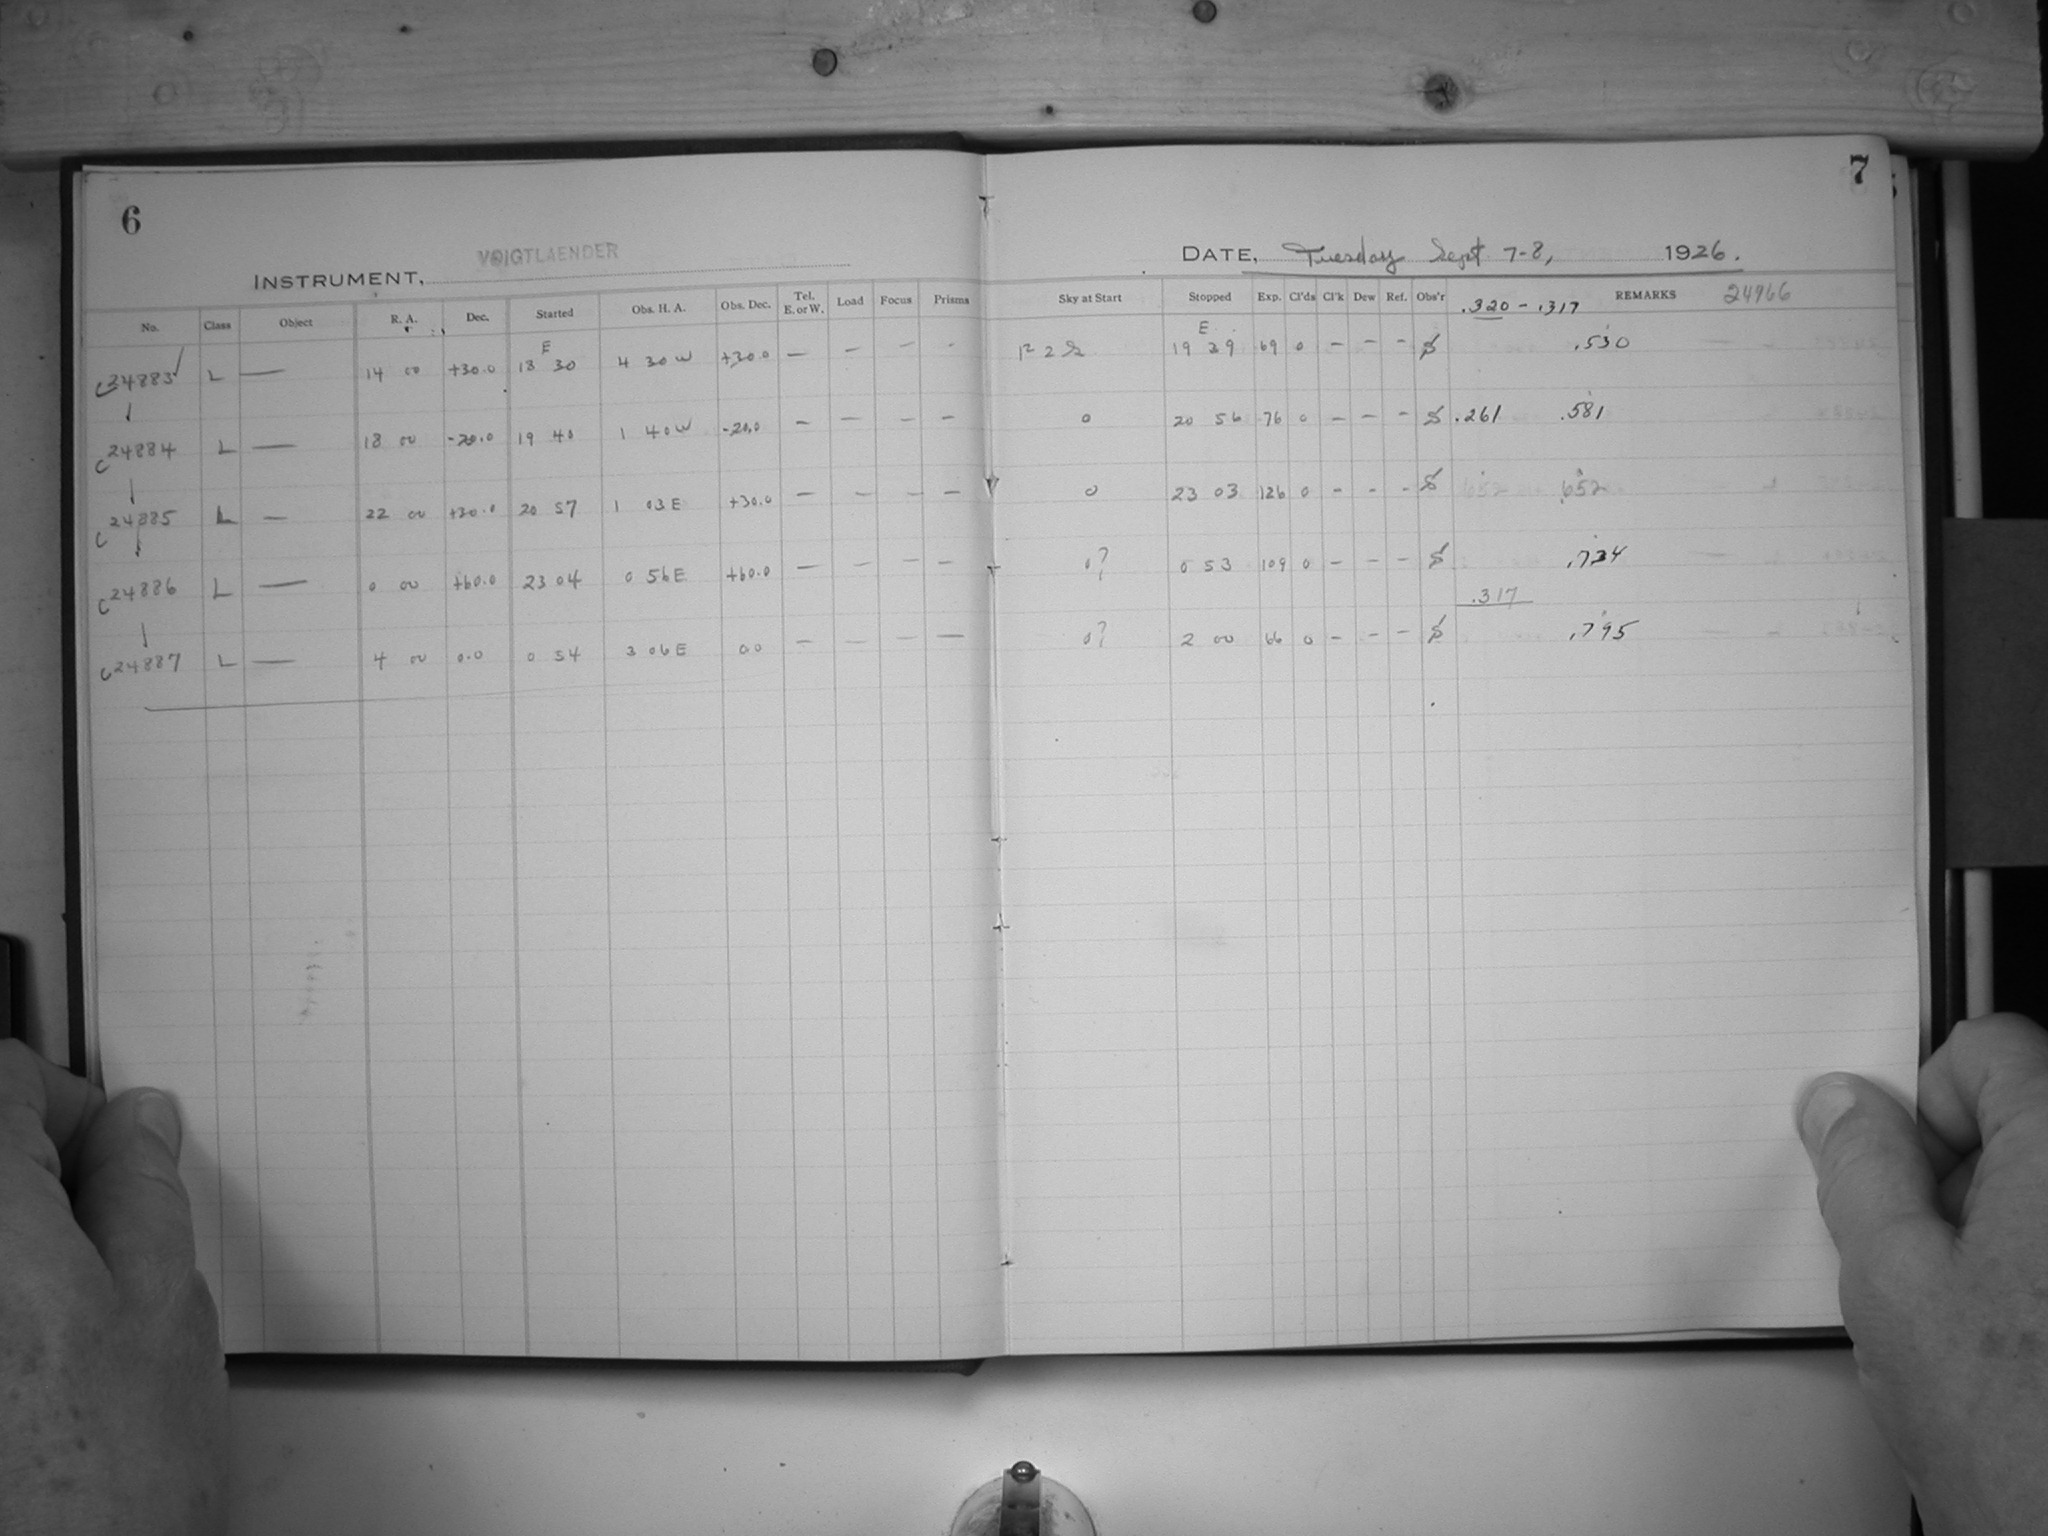 6
7
INSTRUMENT, VOIGTLAENDER
DATE, Tuesday Sept 7-8, 1926.
No. Class Object R. A. Dec. Started Obs. H. A. Obs. Dec. Tel. E. or W. Load Focus Prisms Sky at Start Stopped Exp. Cl'ds Cl'k Dew Ref. Obs'r REMARKS 24966
.320 - .317
E E
C24883 L — 14 00 +30.0 18 30 4 30 W +30.0 — — — - 19 39 69 0 - - - S .530
C24884 L — 18 00 -20.0 19 40 1 40W -20.0 — — — — 0 20 56 76 0 - - - S .261 .581
C24885 L — 22 00 +30.0 20 57 1 03 E +30.0 — — — — 0 23 03 126 0 - - - S .652
C24886 L — 0 00 +60.0 23 04 0 56 E +60.0 — — — — 0? 0 53 109 0 - - - S .734
.317
C24887 L — 4 00 0.0 0 54 3 06 E 0.0 — — — — 0? 2 00 66 0 - - - S .795